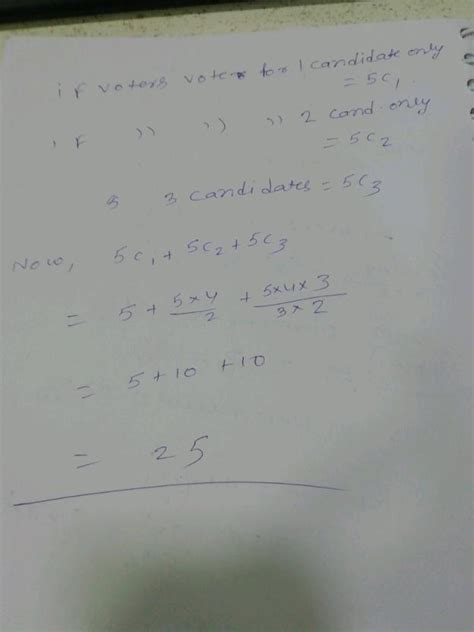 if voters vote for 1 candidate only
= 5C1
if ,, ,, ,, 2 cand. only
= 5C2
3 3 candidates = 5C3
Now, 5C1 + 5C2 + 5C3
= 5 + 5×4/2 + 5×4×3/3×2
= 5 + 10 + 10
= 25